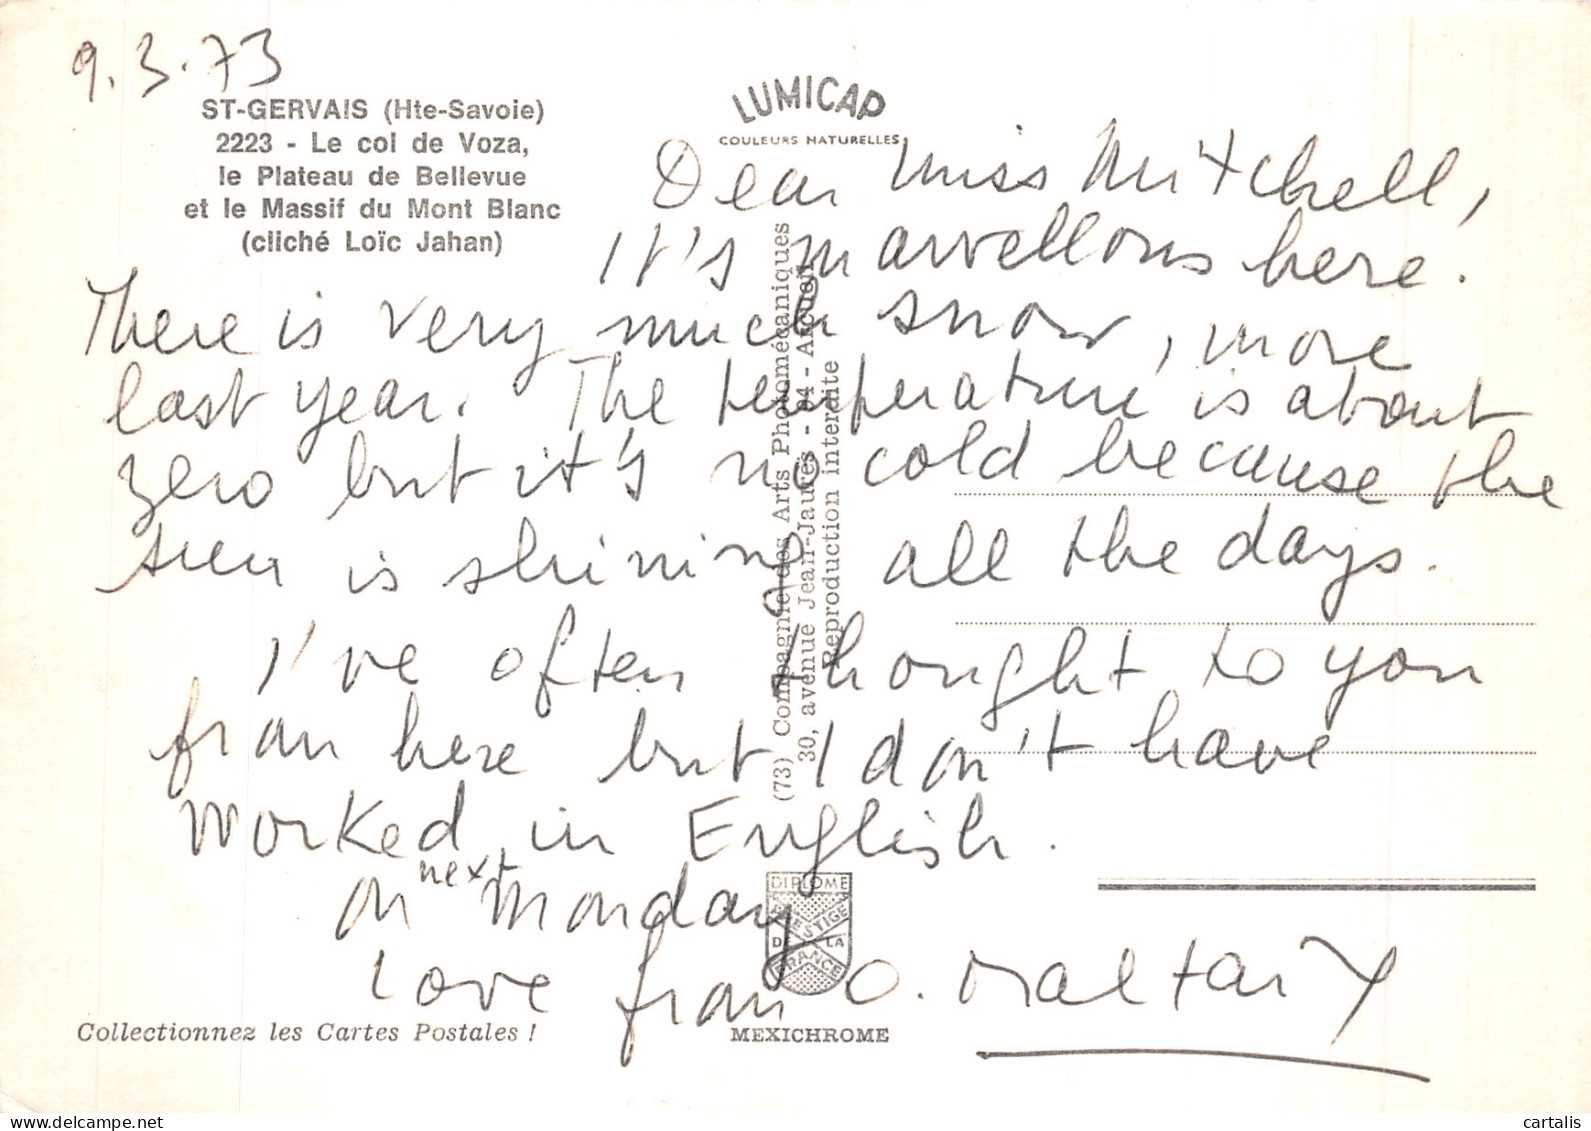 9.3.73
ST-GERVAIS (Hte-Savoie)
2223 - Le col de Voza,
le Plateau de Bellevue
et le Massif du Mont Blanc
(cliché Loïc Jahan)
LUMICAP
COULEURS NATURELLES
Dear Miss Mitchell,
It's marvellous here.
There is very much snow, more
last year. The temperature is about
zero but it's no cold because the
sun is shining all the days.
I've often thought to you
from here but I don't have
worked in English.
on next Monday
Love from O.
(73) Compagnie des Arts Photomécaniques
30, avenue Jean-Jaurès - 94 - Arcueil
Reproduction interdite
DIPLOME
PRESTIGE
DE LA
FRANCE
Collectionnez les Cartes Postales !
MEXICHROME
delcampe.net
cartaly